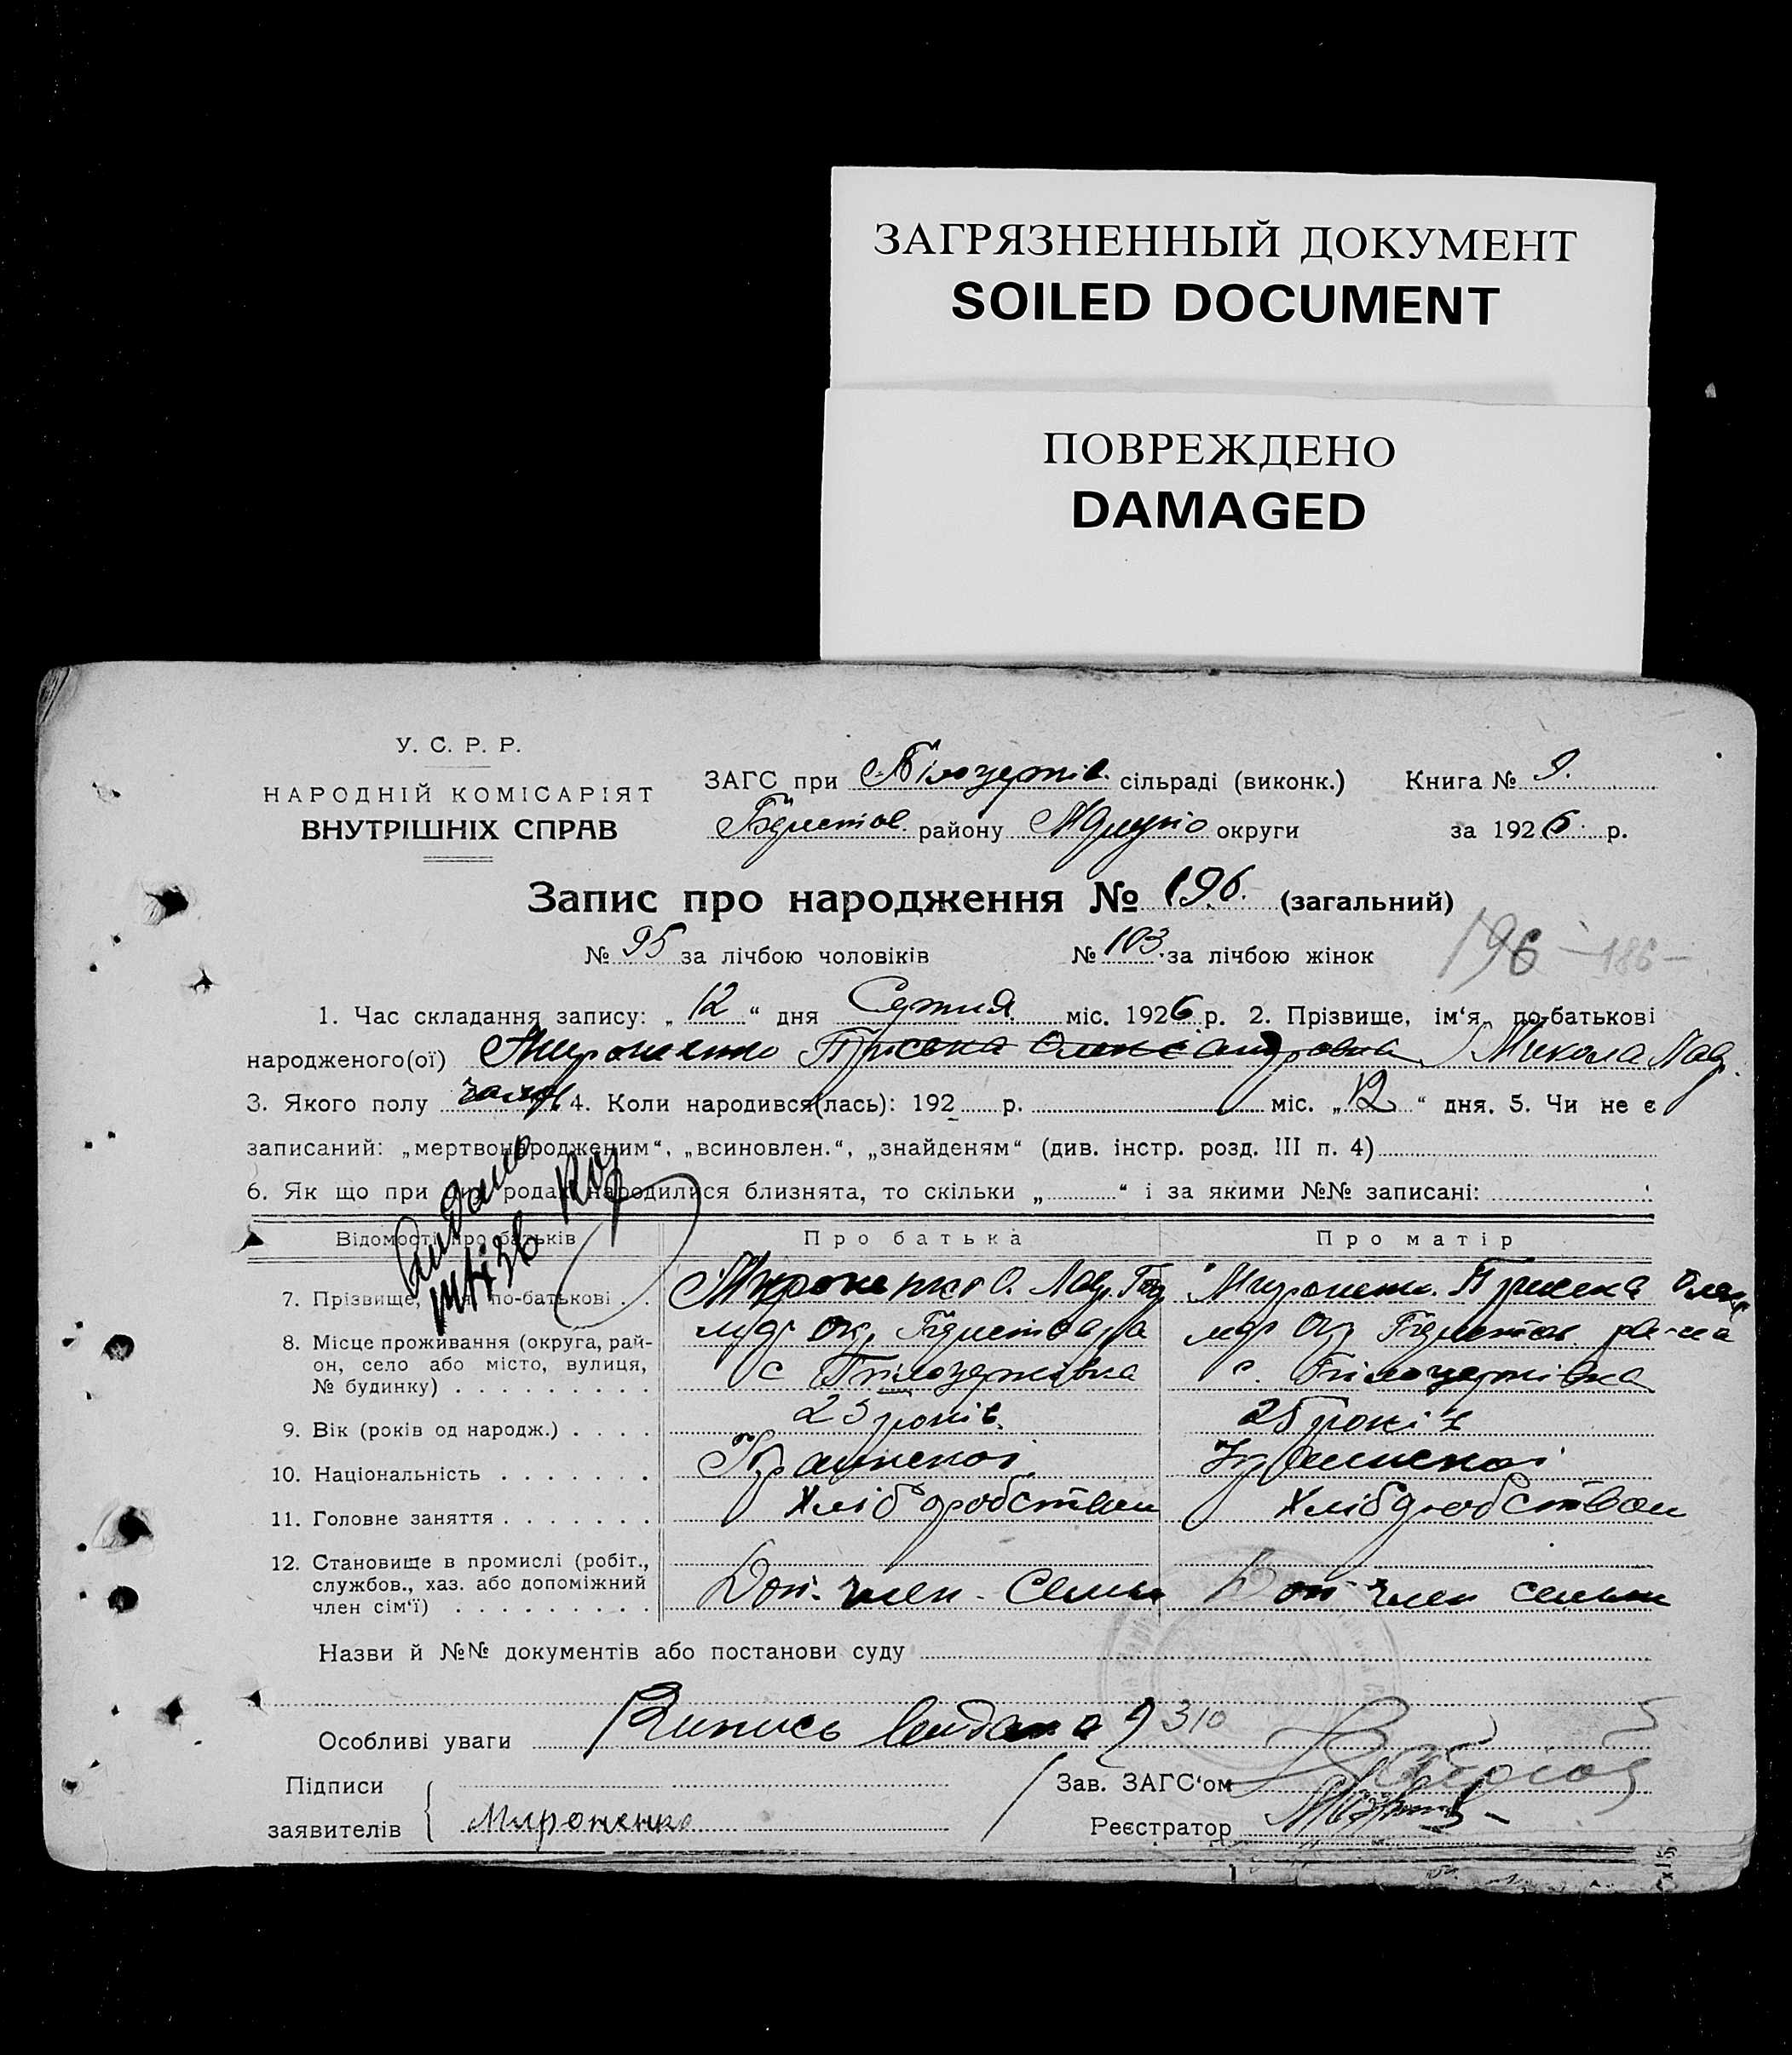 ЗАГРЯЗНЕННЫЙ ДОКУМЕНТ
SOILED DOCUMENT
ПОВРЕЖДЕНО
DAMAGED
У. С. Р. Р.
НАРОДНІЙ КОМІСАРІЯТ
ВНУТРІШНІХ СПРАВ
ЗАГС при Білоцерків. сільраді (виконк.) Книга № 9.
району округи за 1926 р.
Запис про народження № 196. (загальний)
№ 95 за лічбою чоловіків № 103. за лічбою жінок
196 — 186 —
1. Час складання запису: „ 12 “ дня Січня міс. 1926 р. 2. Прізвище, ім‘я, по-батькові
народженого(ої) Мироненко Пріська Олександровна Микола Лавр.
3. Якого полу чолов 4. Коли народився(лась): 192 р. міс. „ 12 “ дня. 5. Чи не є
записаний: „мертвонародженим“, „всиновлен.“, „знайденям“ (див. інстр. розд. III п. 4)
6. Як що при родах народилися близнята, то скільки „ “ і за якими №№ записані:
Видано
Відомості про батьків Про батька Про матір
7. Прізвище, по-батькові . . Мироненко Лавр. Мироненк. Пріська Олек
8. Місце проживання (округа, рай-
он, село або місто, вулиця,
№ будинку) . . . . . . . . . с Білоцерківка с. Білоцерківка
9. Вік (років од народж.) . . . . 23 років. 25 років
10. Національність . . . . . . . Украинскоі Украинскоі
11. Головне заняття . . . . . . . Хлібробством Хлібробством
12. Становище в промислі (робіт.,
службов., хаз. або допоміжний
член сім‘ї) . . . . . . . . . Доп. член. семьи Доп член семьи
Назви й №№ документів або постанови суду
Особливі уваги Випись видана 310
Підписи
заявителів Мироненко
Зав. ЗАГС‘ом
Реєстратор